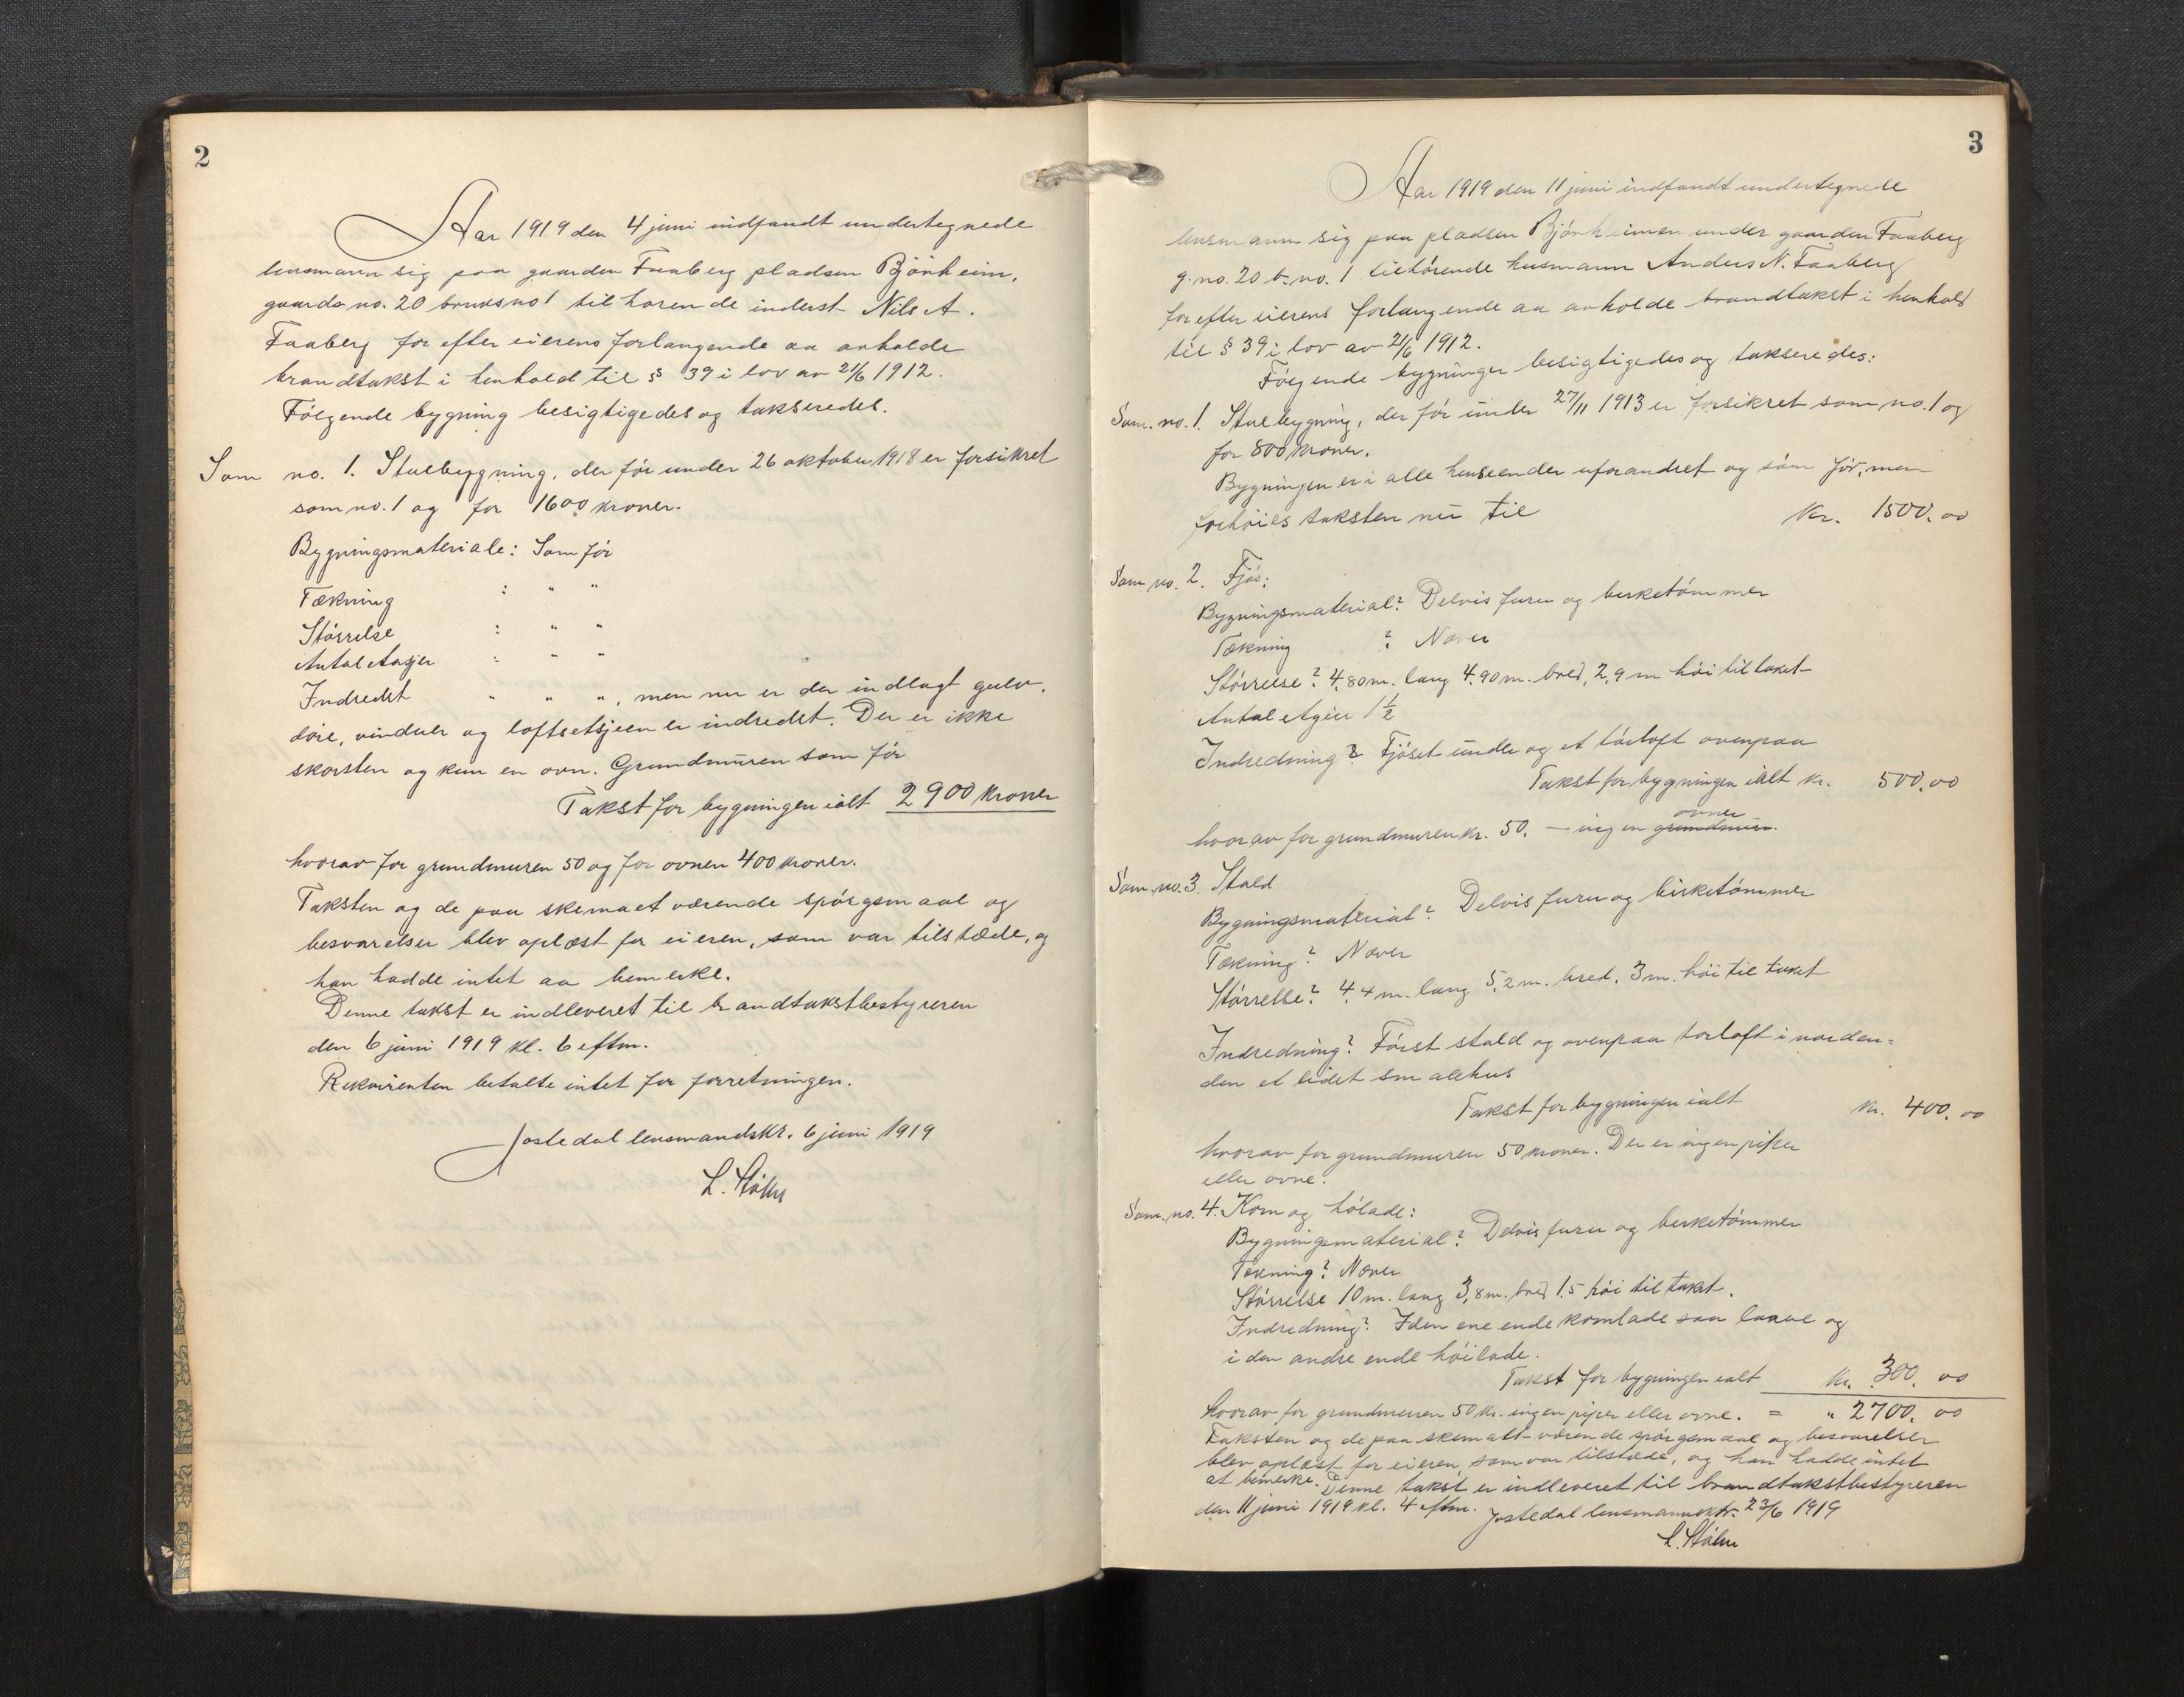 2
Aar 1919 den 4 juni indfandt undertegnede
lensmann sig paa gaarden Faaberg pladsen Bjönheim,
gaards no. 20 bruks no 1 tilhørende inderst Nils A.
Faaberg for efter eierens forlangende aa avholde
brandtakst i henhold til § 39 i lov av 21/6 1912.
Følgende bygning besigtigedes og takseredes.
Som no. 1. Stuebygning, der før under 26 oktober 1918 er forsikret
som no. 1 og for 1600 kroner.
Bygningsmateriale: Som før
Tækning : " "
Størrelse : " "
Antal etasjer : " "
Indredet " " ", men nu er der indlagt gulv,
døre, vinduer og loftsetsjeen er indredet. Der er ikke
skorsten og kun en ovn. Grundmüren som før
Takst for bygningen ialt 2900 kroner
hvorav for grundmuren 50 og for ovnen 400 kroner.
Taksten og de paa skemaet værende spørgsmaal og
besvarelser blev oplæst for eieren, som var tilstæde, og
han hadde intet aa bemerke.
Denne takst er indleveret til brandtakstbestyreren
den 6 juni 1919 kl. 6 eftm.
Rekvirenten betalte intet for forretningen.
Jostedal lensmandskr. 6 juni 1919
L. Støhn
3
Aar 1919 den 11 juni indfandt undertegnede
lensmann sig paa pladsen Bjönheimen under gaarden Faaberg
g. no. 20 b. no. 1 tilhørende husmann Anders N. Faaberg
for efter eierens forlangende aa avholde brandtakst i henhold
til § 39 i lov av 21/6 1912.
Følgende bygninger besigtigedes og takseredes:
Som. no. 1. Stuebygning, der før ünder 27/11 1913 er forsikret som no. 1 og
for 800 kroner.
Bygningen er i alle henseender uforandret og som før, men
forhöies taksten nü til Kr. 1500.00
Som no. 2. Fjös:
Bygningsmaterial? Delvis furu og birketømmer
Tækning ? Næver
Størrelse? 4,80 m. lang 4,90 m. bred, 2,9 m høi til taket
Antal etgier 1 1/2
Indredning? Fjöset ünder og et törloft ovenpaa
Takst for bygningen ialt kr. 500.00
hvorav for grundmuren kr. 50. — ingen grundmür. ovner
Som. no. 3. Stald
Bygningsmaterial? Delvis furu og birketømmer
Tækning? Næver
Størrelse? 4,4 m. lang 5,2 m. bred, 3 m. høi til taket
Indredning? Først stald og ovenpaa torloft i norden=
den et lidet smalehus
Takst for bygningen ialt Kr. 400.00
hvorav for grundmuren 50 kroner. Der er ingen piper
eller ovne.
Som. no. 4. Korn og hölade:
Bygningsmaterial? Delvis furu og birketømmer
Tækning? Næver
Størrelse 10 m. lang 3,8 m. bred 1.5 høi til taket.
Indredning? I den ene ende kornlade saa laave og
i den andre ende höilade.
Takst for bygningen ialt Kr. 300.00
hvorav for grundmuren 50 kr. ingen piper eller ovne. = " 2700.00
Taksten og de paa skematt værende spørgsmaal og besvarelser
blev oplæst for eieren, som var tilstæde, og han hadde intet
at bemerke. Denne takst er indleveret til brandtakstbestyreren
den 11 juni 1919 kl. 4 eftm. Jostedal lensmannsktr. 23/6 1919
L. Støhn